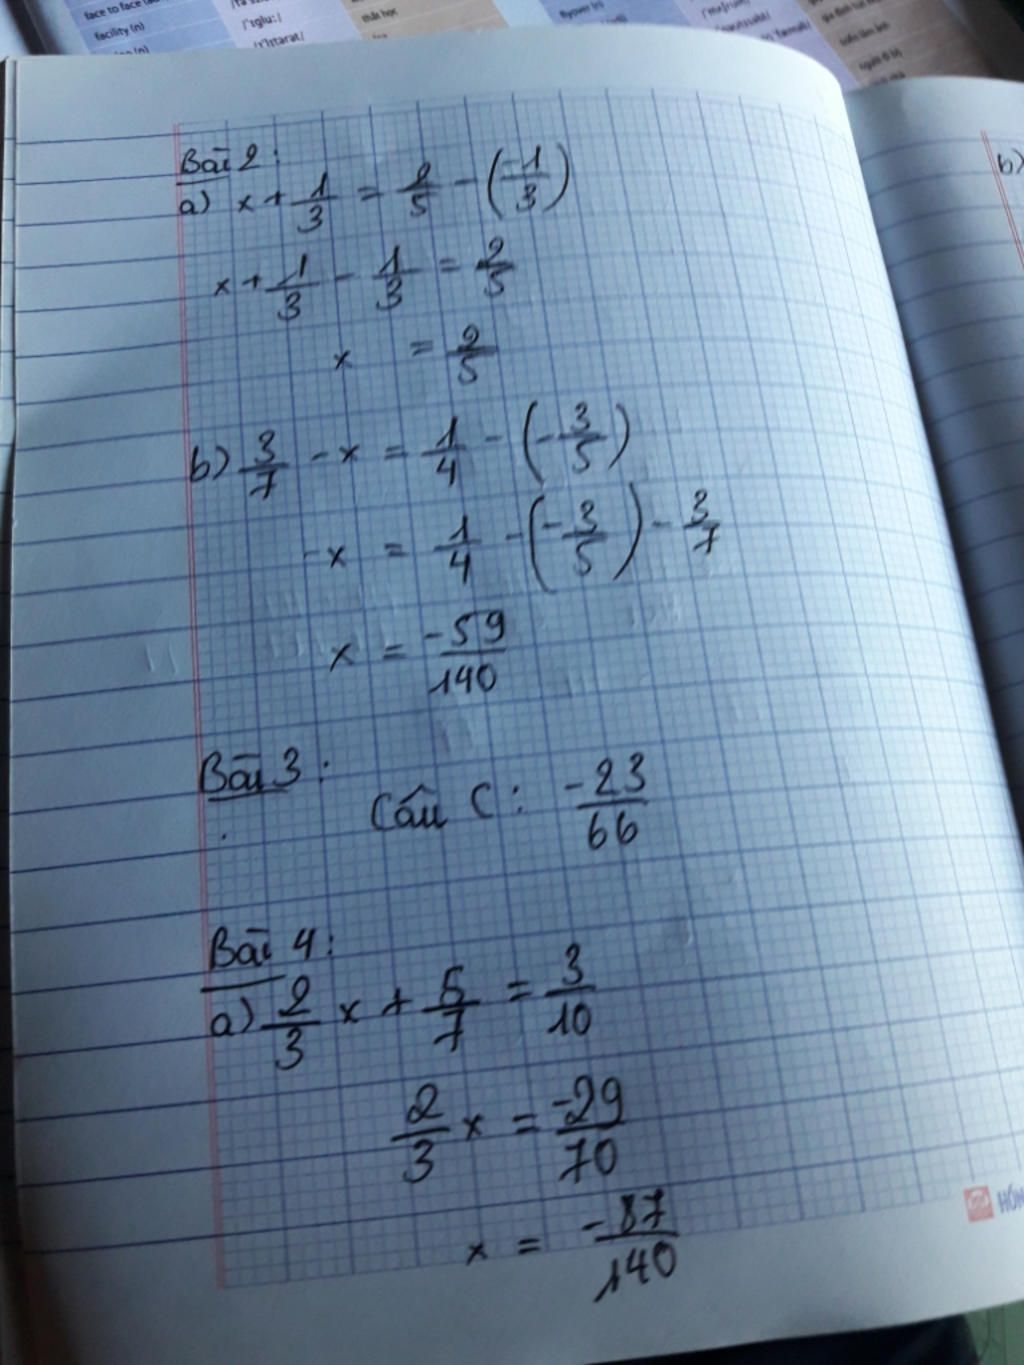 face to face (ad
facility (n)
thất học
flyover (n)
Bài 2:
a) x + 1/3 = 2/5 - (-1/3)
x + 1/3 - 1/3 = 2/5
x = 2/5
b) 3/7 - x = 1/4 - (-3/5)
-x = 1/4 - (-3/5) - 3/7
x = -59/140
Bài 3:
Câu C: -23/66
Bài 4:
a) 2/3 x + 5/7 = 3/10
2/3 x = -29/70
x = -87/140
b)
HỒN